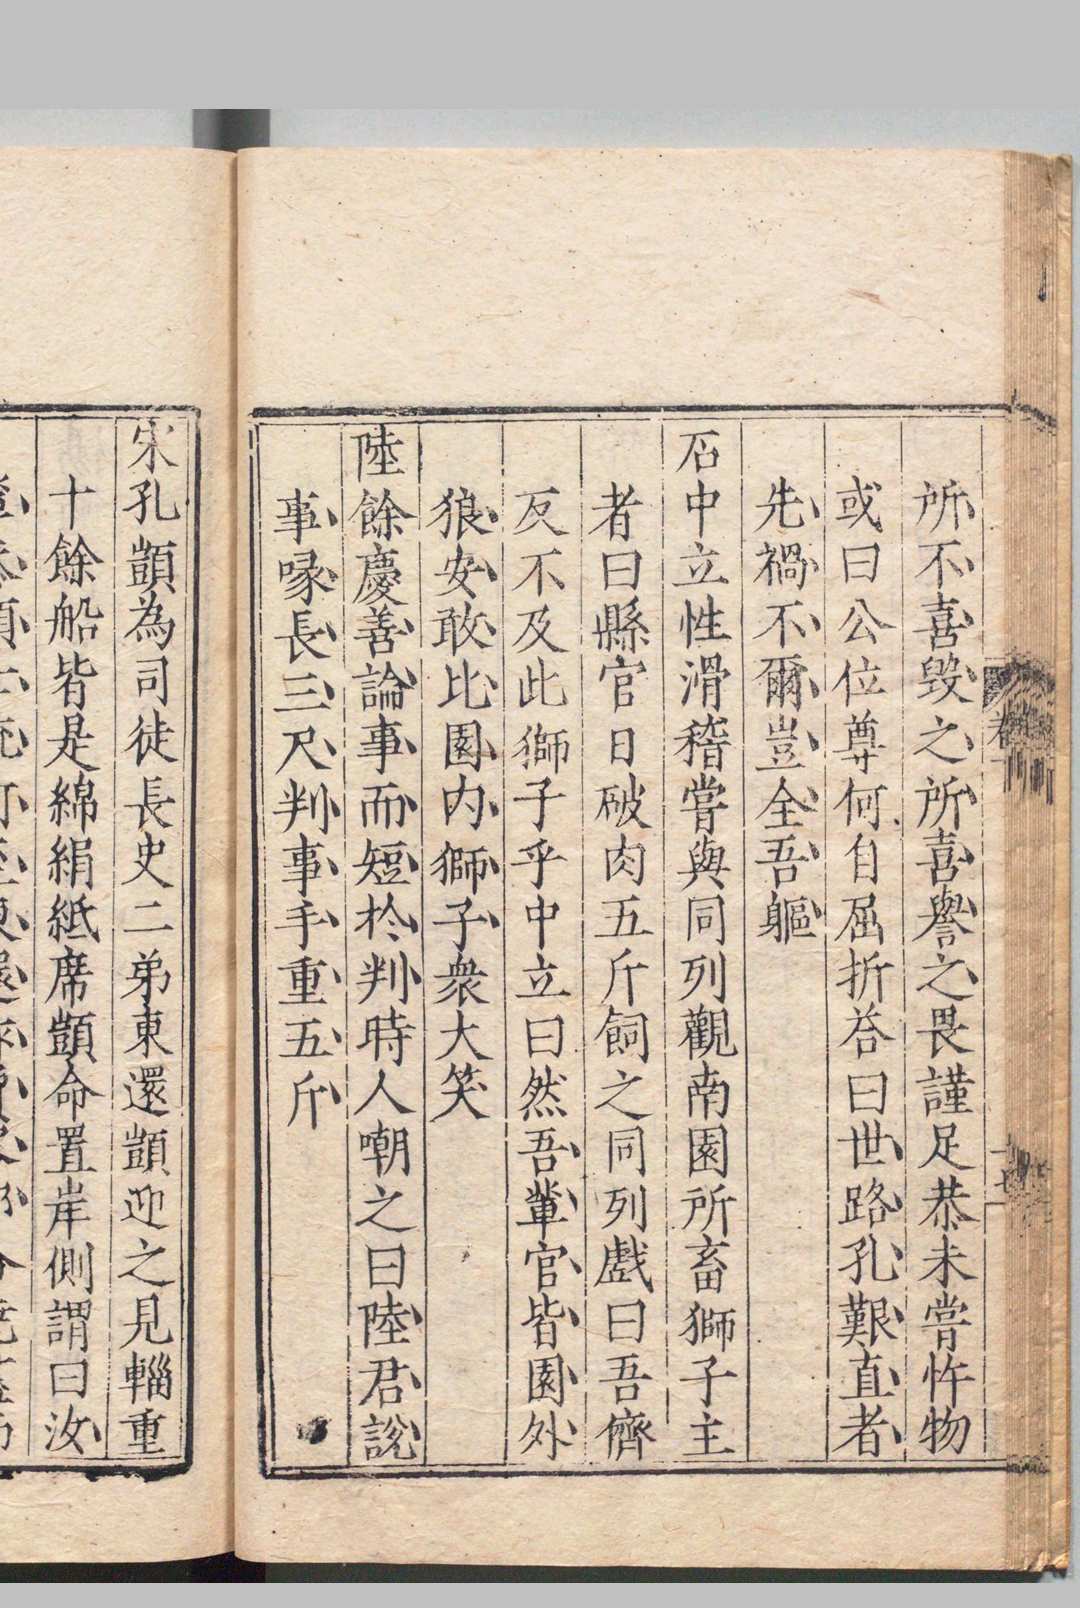 所不喜毀之所喜譽之畏謹足恭未嘗忤物
或曰公位尊何自屈折荅曰世路孔艱直者
先禍不爾豈全吾軀
石中立性滑稽嘗與同列觀南園所畜獅子主
者曰縣官日破肉五斤飼之同列戲曰吾儕
反不及此獅子乎中立曰然吾輩官皆園外
狼安敢比園內獅子衆大笑
陸餘慶善論事而短於判時人嘲之曰陸君說
事喙長三尺判事手重五斤
宋孔顗為司徒長史二弟東還顗迎之見輜重
十餘船皆是綿絹紙席顗命置岸側謂曰汝